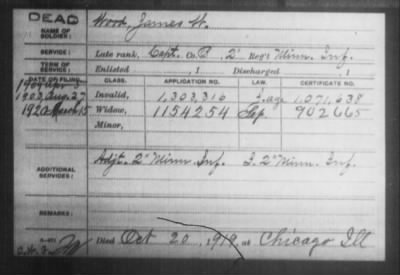 DEAD
NAME OF SOLDIER: Wood, James W.
SERVICE: Late rank, Capt. Co. B, 2" Reg't Minn. Inf.
TERM OF SERVICE: Enlisted , 1 Discharged , 1
DATE OF FILING. CLASS. APPLICATION NO. LAW. CERTIFICATE NO.
Invalid, 1,303,316 1,071,638
1920 March 15 Widow, 1154254 902665
Minor,
ADDITIONAL SERVICES: Adjt. 2" Minn. Inf. I. 2" Minn. Inf.
REMARKS:
Died Oct 20, 1919, at Chicago Ill